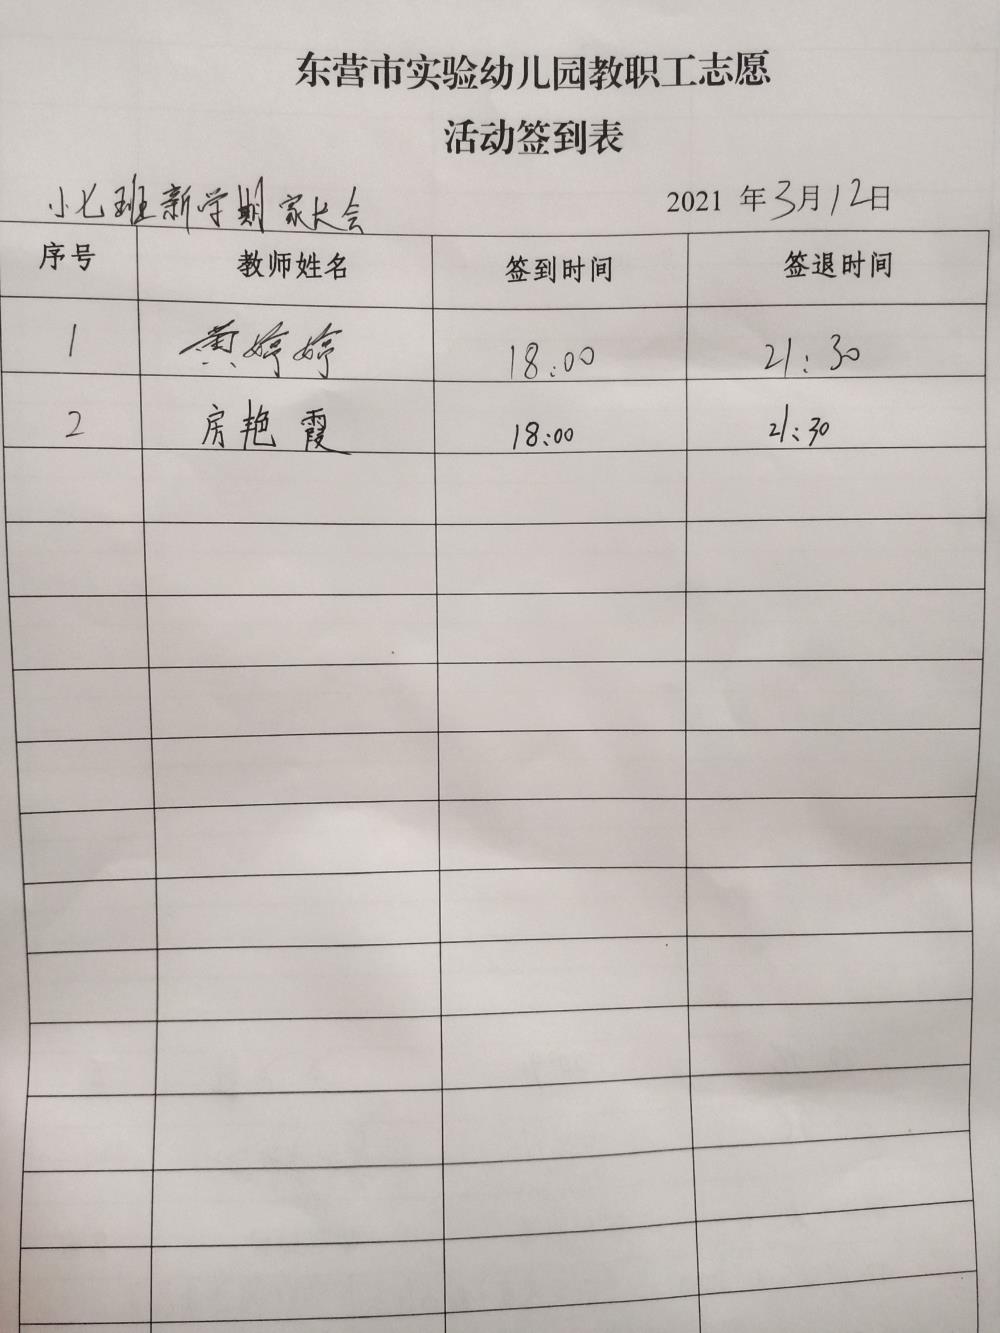 东营市实验幼儿园教职工志愿
活动签到表
小七班新学期家长会 2021 年3月12日
序号 教师姓名 签到时间 签退时间
1 黄婷婷 18:00 21:30
2 房艳霞 18:00 21:30